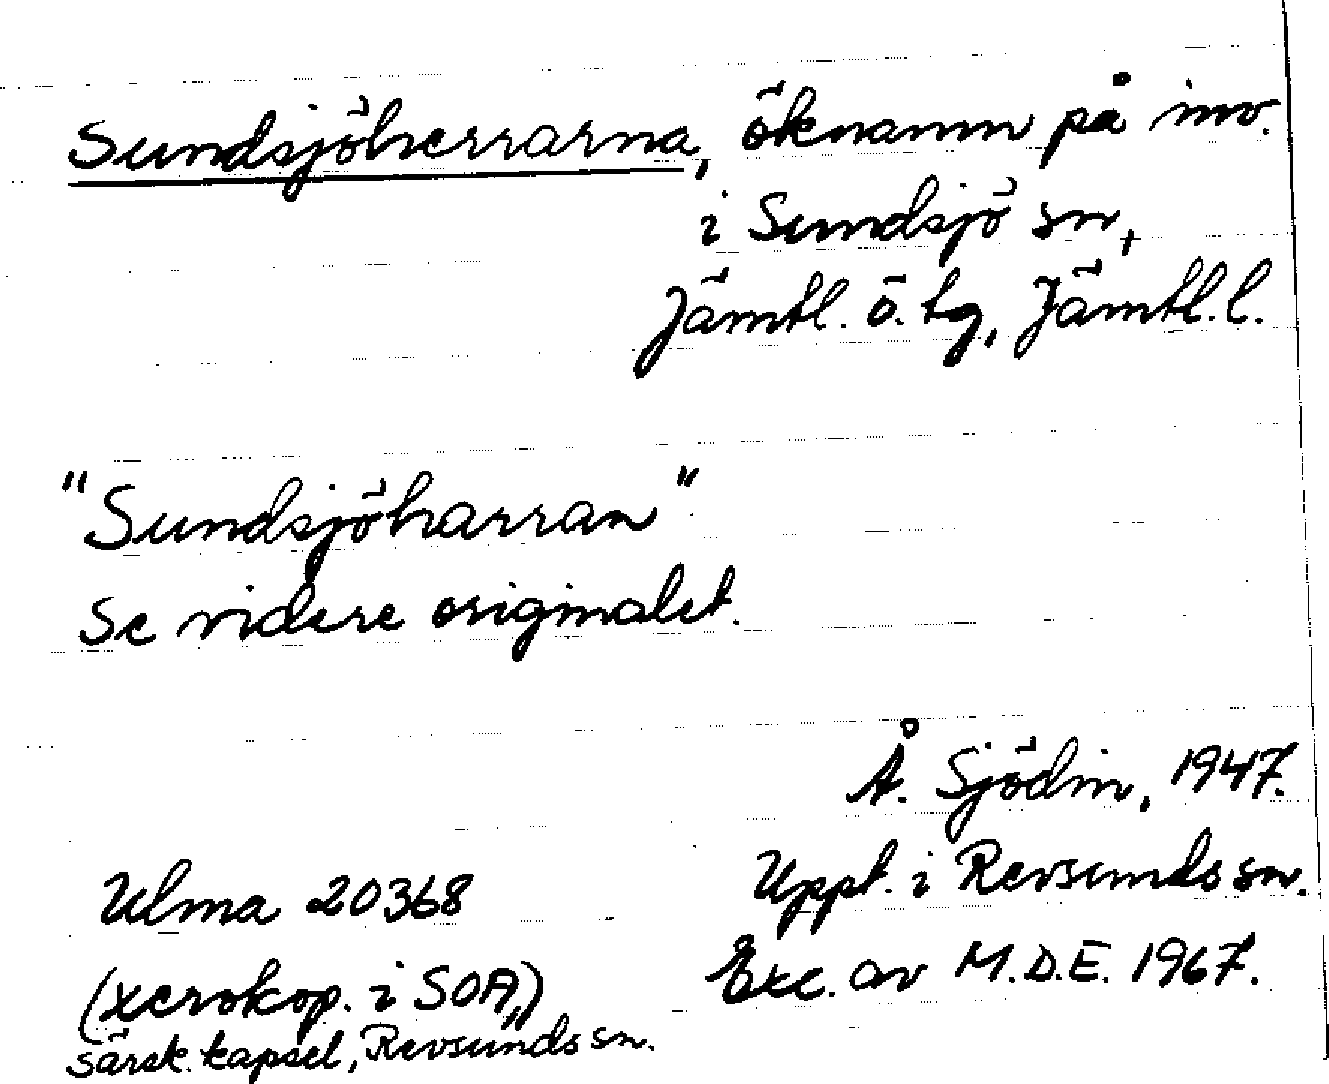 Sundsjöherrarna, öknamn på inv.
i Sundsjö sn,
Jämtl. ö. tg, Jämtl. l.
"Sundsjöharran"
Se vidare originalet.
Å. Sjödin, 1947.
Uppt. i Revsunds sn.
Exc. av M.D.E. 1967.
Ulma 20368
(xerokop. i SOA,)
särsk. kapsel, Revsunds sn.